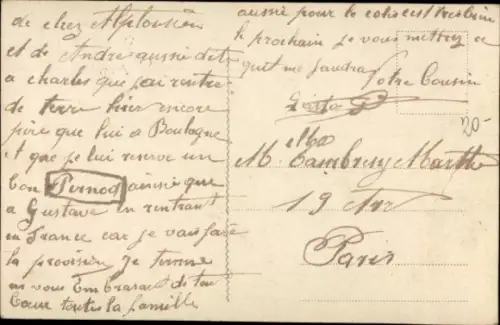 de chez Alphonsine
et de André aussi dit
a charles que j'ai rentré
de terre hier encore
pire que lui a Boulogne
et que je lui reserve un
bon Pernod ainsie que
a Gustave en rentrant
en France car je vais faire
la provision Je termine
en vous Embrasant de tout
Cœur toutes la famille
aussie pour le colis c'est tres bien
le prochain je vous mettrez ce
qu'il me faudra
Votre Cousin
Melle
19 Arr
Paris
20-